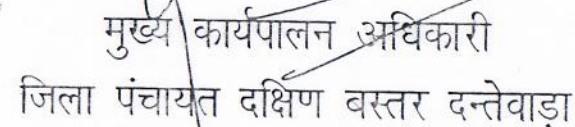 मुख्य कार्यपालन अधिकारी
जिला पंचायत दक्षिण बस्तर दन्तेवाड़ा